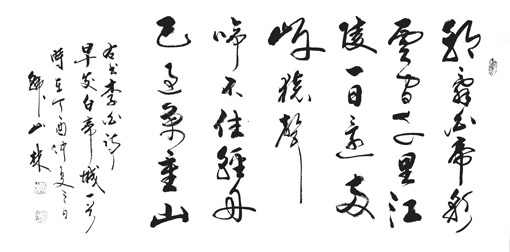 朝辭白帝彩
雲間千里江
陵一日還兩
岸猿聲
啼不住輕舟
已過萬重山
右書李白詩
早发白帝城一首
時在丁酉仲夏之日
山林